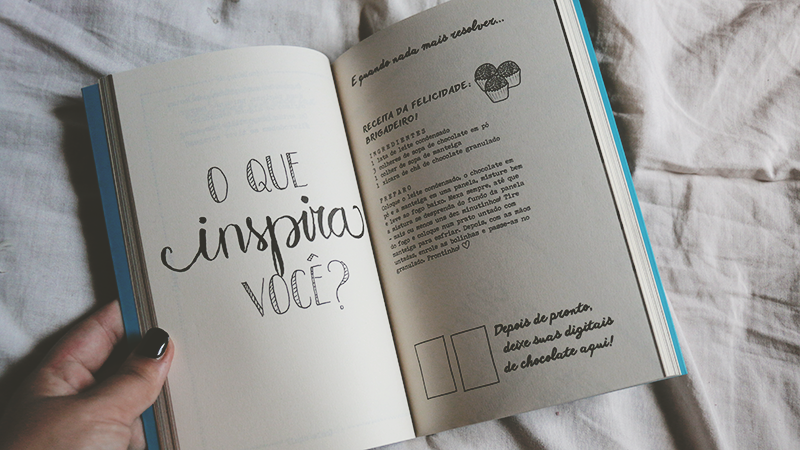 O QUE
inspira
VOCÊ?
E quando nada mais resolver...
RECEITA DA FELICIDADE:
BRIGADEIRO!
INGREDIENTES
1 lata de leite condensado
3 colheres de sopa de chocolate em pó
1 colher de sopa de manteiga
1 xícara de chá de chocolate granulado
PREPARO
Coloque o leite condensado, o chocolate em
pó e a manteiga em uma panela, misture bem
e leve ao fogo baixo. Mexa sempre, até que
a mistura se desprenda do fundo da panela
- mais ou menos uns dez minutinhos! Tire
do fogo e coloque num prato untado com
manteiga para esfriar. Depois, com as mãos
untadas, enrole as bolinhas e passe-as no
granulado. Prontinho! ♡
Depois de pronto,
deixe suas digitais
de chocolate aqui!